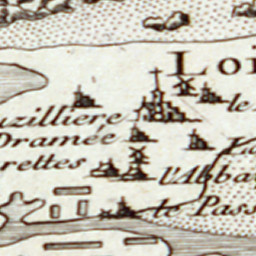 Loi
uzilliere
le
Dramée
rettes
l'Abbay
le Pass